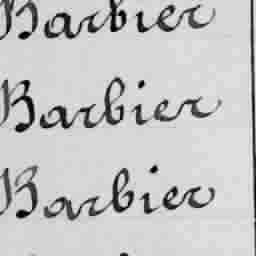 Barbier
Barbier
Barbier